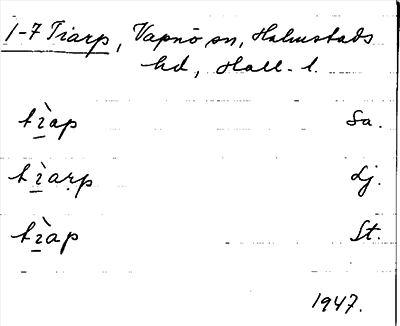 1-7 Tiarp, Vapnö sn, Halmstads
hd, Hall. l.
tı̱̀ap Sa.
tı̱̀arp Lj.
tı̱̀ap St.
1947.